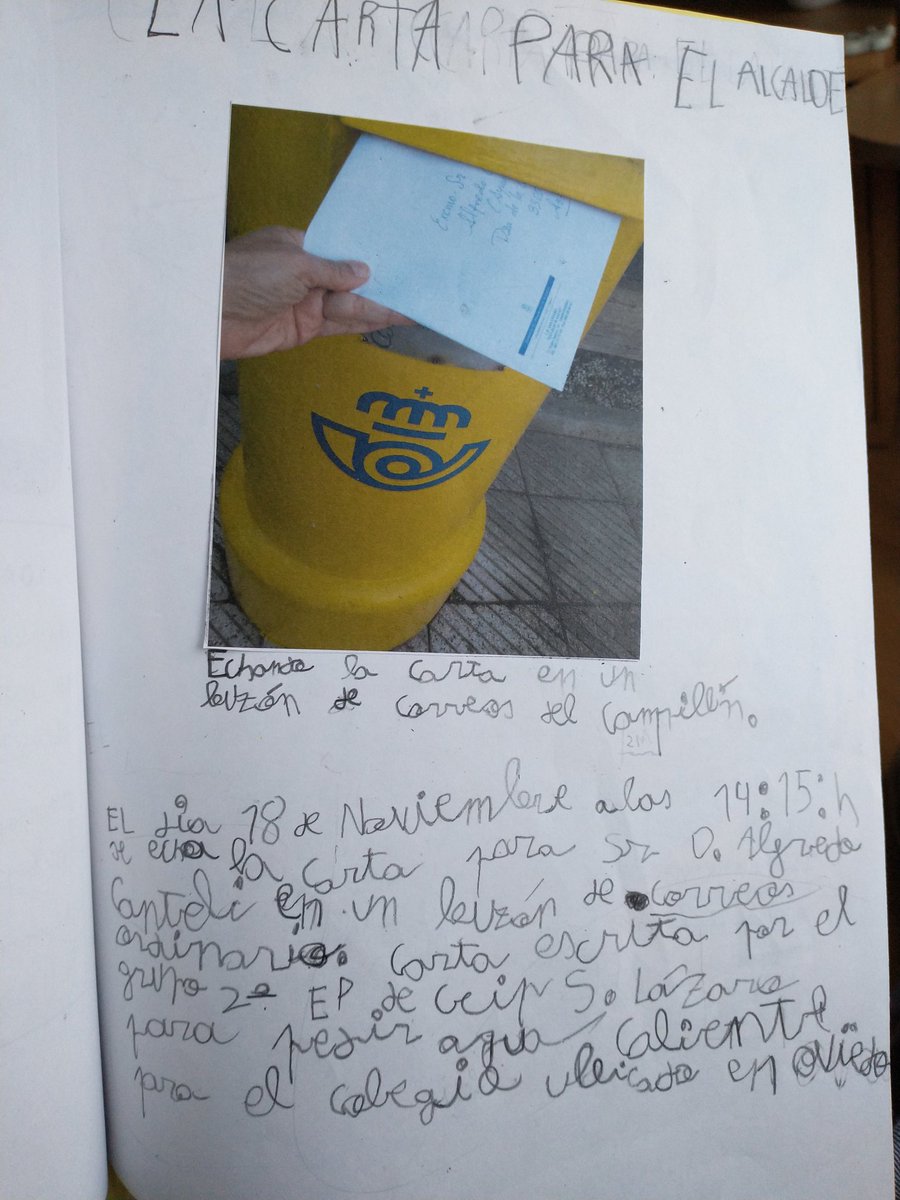 LA CARTA PARA EL ALCALDE
Excmo. Sr
Alfredo
Echando la carta en un
buzón de correos del Campillín.
EL día 18 de Noviembre a las 14:15:h
se echa la cárta para Sr D. Alfredo
Canteli en un buzón de correos
ordinario. carta escrita por el
grupo 2º EP de Ceip S. Lázaro
para pedir agua caliente
para el colegio ubicado en oviedo